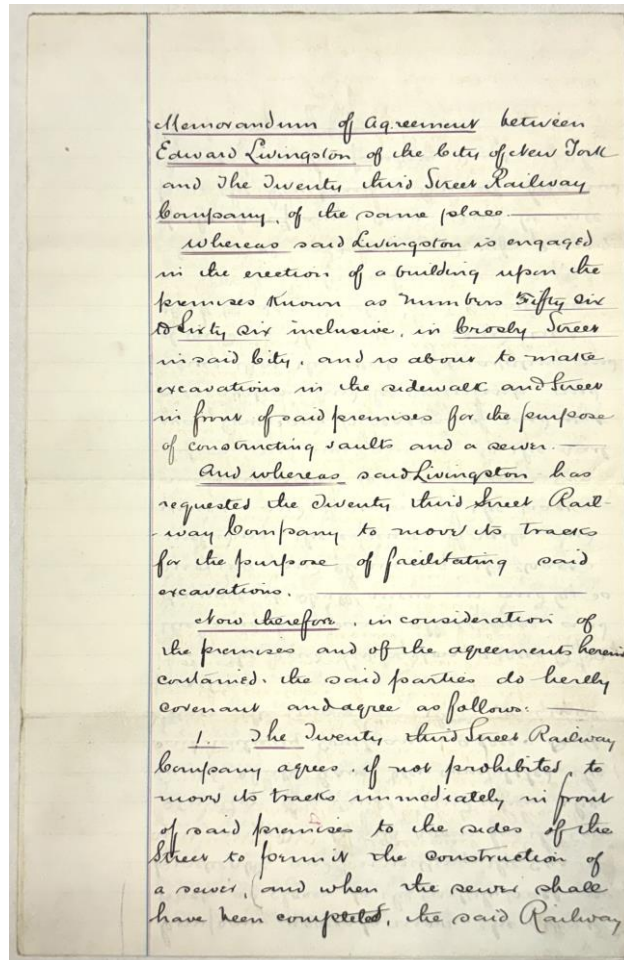 Memorandum of Agreement between
Edward Livingston of the City of New York
and The Twenty third Street Railway
Company, of the same place.
Whereas said Livingston is engaged
in the erection of a building upon the
premises known as numbers Fifty six
to Sixty six inclusive, in Crosby Street
in said City, and is about to make
excavations in the sidewalk and Street
in front of said premises for the purpose
of constructing vaults and a sewer.
And whereas said Livingston has
requested the Twenty third Street Rail-
-way Company to move its tracks
for the purpose of facilitating said
excavations.
Now therefore, in consideration of
the premises and of the agreements herein
contained, the said parties do hereby
covenant and agree as follows:
1. The Twenty third Street Railway
Company agrees, if not prohibited, to
move its tracks immediately in front
of said premises to the sides of the
Street to permit the construction of
a sewer, and when the sewer shall
have been completed, the said Railway